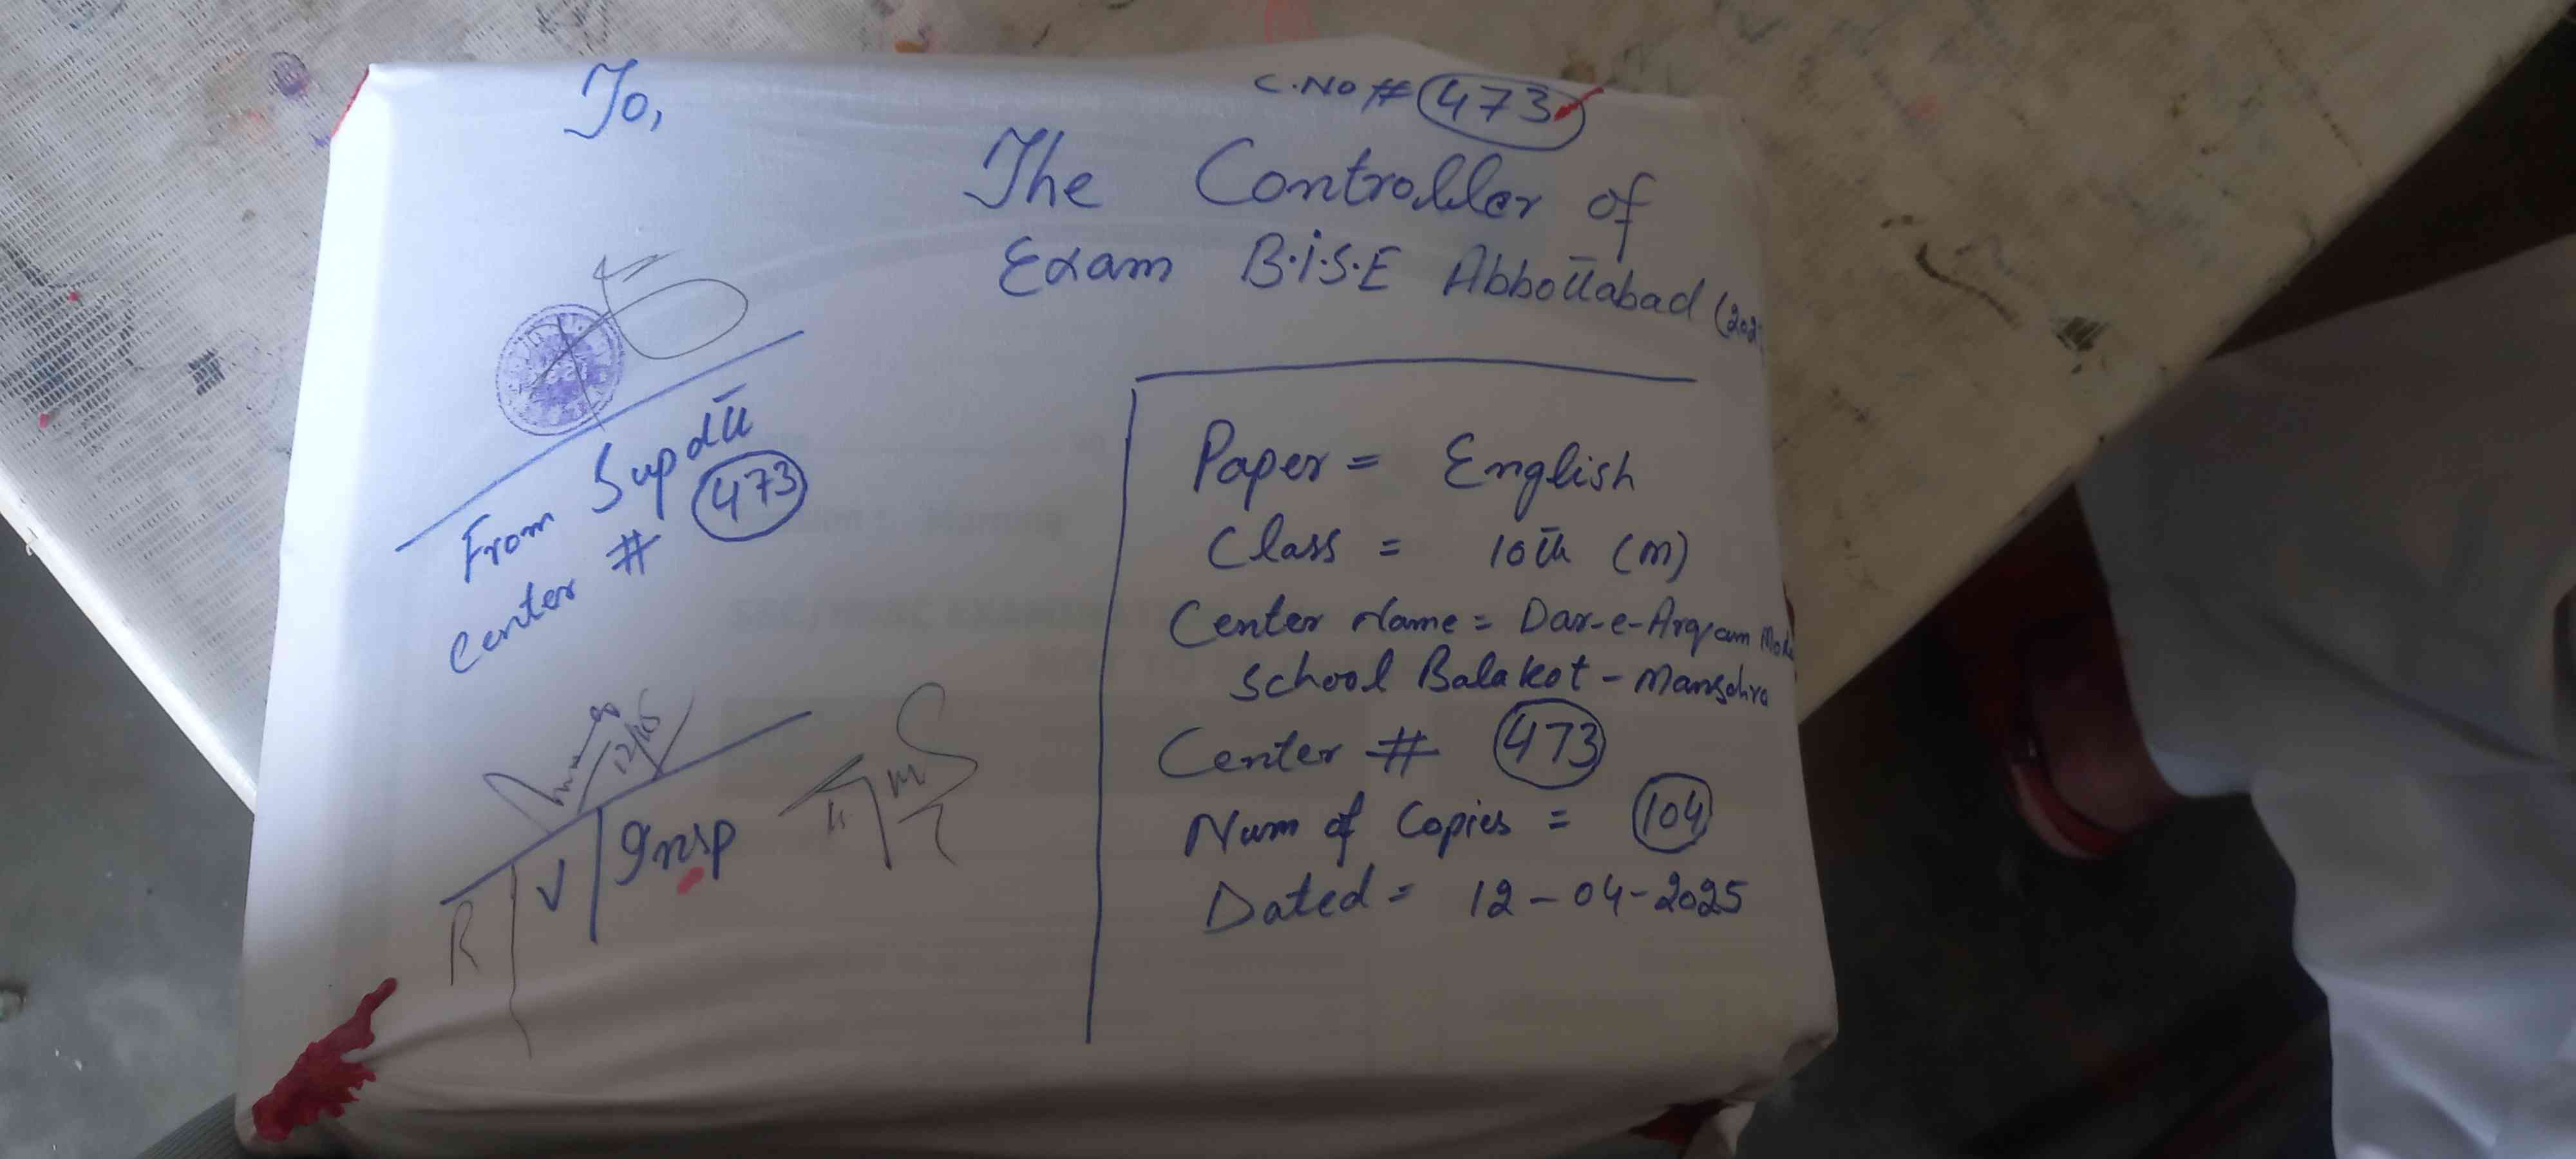 To,
C.No # 473
The Controller of
Exam B.I.S.E Abbottabad
From Supdtt
Center # 473
12/
R V Insp
Paper = English
Class = 10th (m)
Center Name = Dar-e-Arqam
School Balakot - Mansehra
Center # 473
Num of Copies = 104
Dated = 12-04-2025